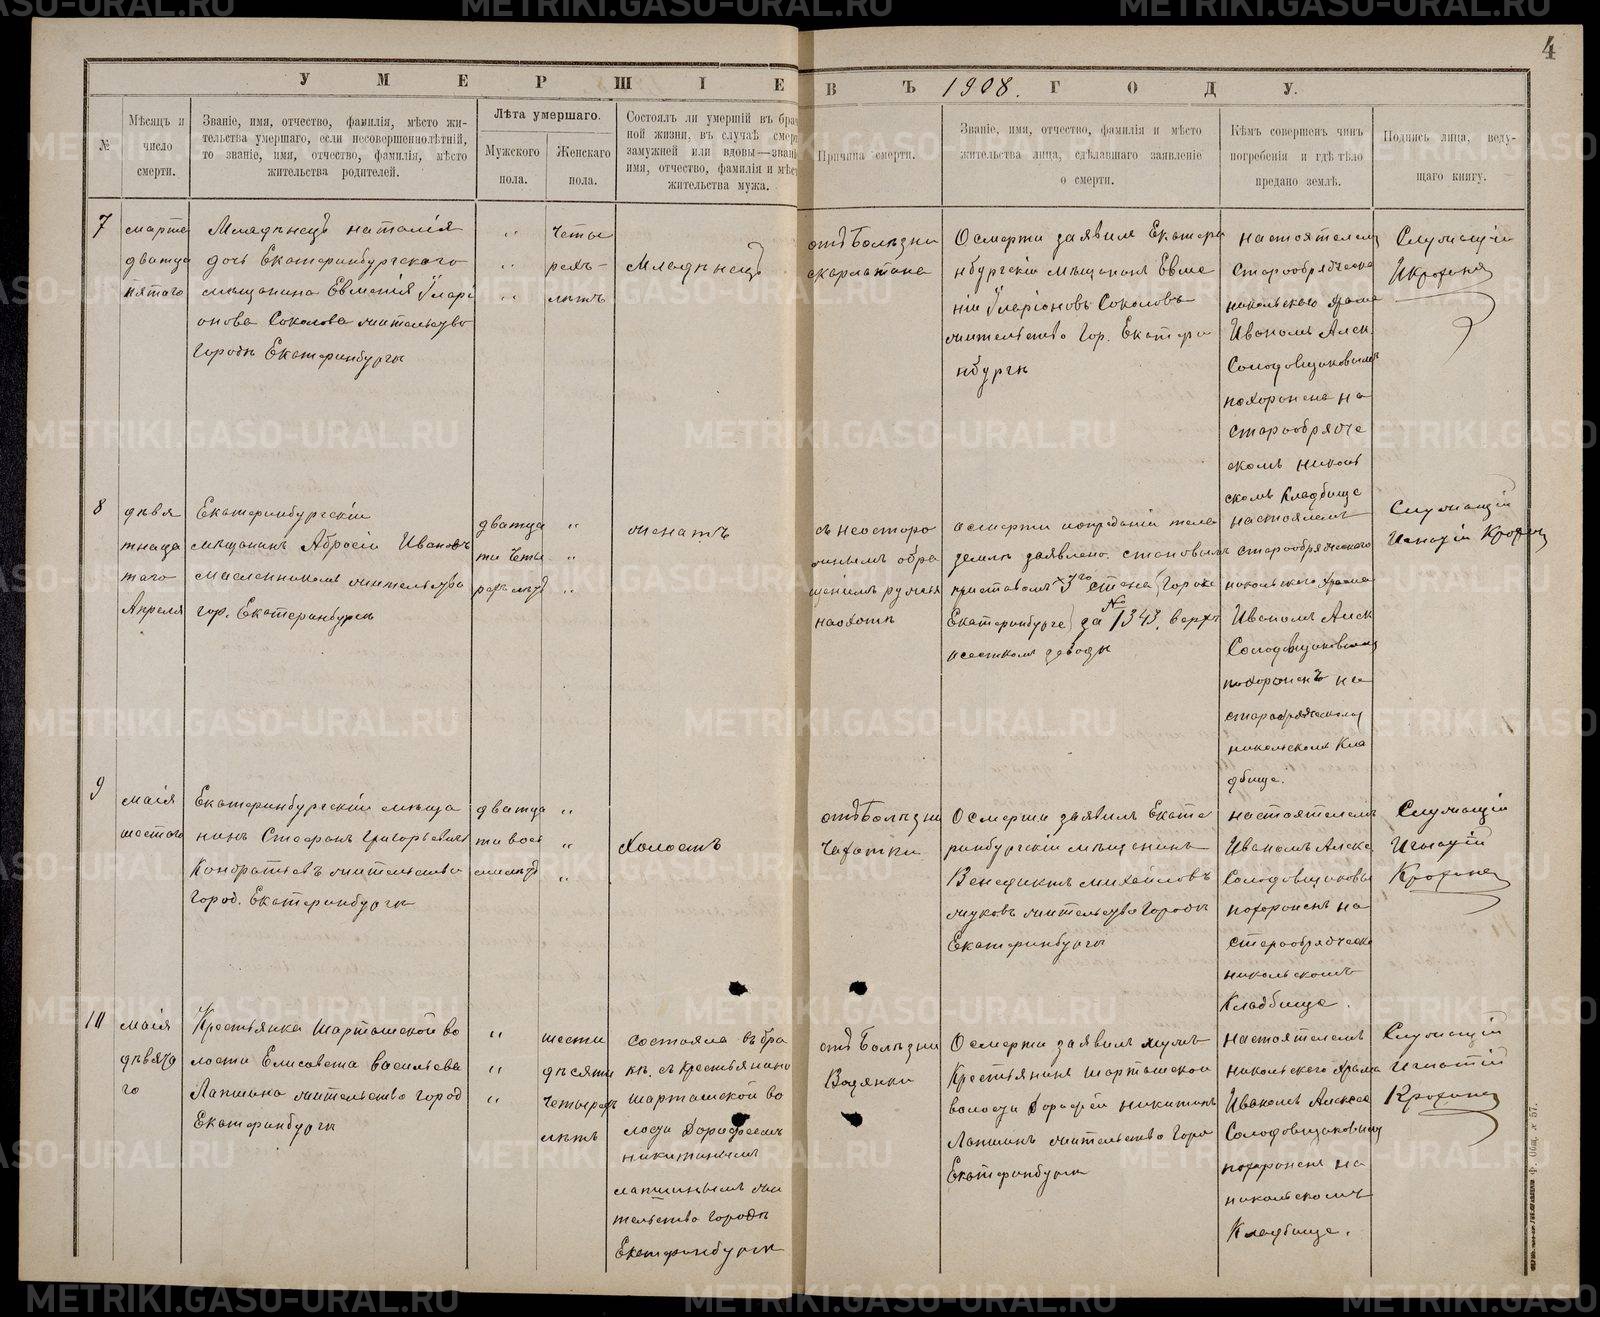 4
УМЕРШІЕ ВЪ 1908. ГОДУ.
№
Мѣсяцъ и
число
смерти.
Званіе, имя, отчество, фамилія, мѣсто жи-
тельства умершаго, если несовершеннолѣтній,
то званіе, имя, отчество, фамилія, мѣсто
жительства родителей.
Лѣта умершаго.
Мужского
пола.
Женскаго
пола.
Состоялъ ли умершій въ брач
ной жизни, въ случаѣ смерт
замужней или вдовы—звані
имя, отчество, фамилія и мѣст
жительства мужа.
Причина смерти.
Званіе, имя, отчество, фамилія и мѣсто
жительства лица, сдѣлавшаго заявленіе
о смерти.
Кѣмъ совершенъ чинъ
погребенія и гдѣ тѣло
предано землѣ.
Подпись лица, веду-
щаго книгу.
7
марта
дватца
пятого
Младѣнецъ наталія
дочь Екатеринбургского
мѣщанина Евменія Iларі
онова Соколова жительсво
Городѣ Екатеринбургѣ
четы
рехъ-
лѣтъ
Младѣнецъ
отъ Болѣзни
скарлатина
О смерти заявилъ Екатери
нбургскій мѣщанинъ Евме
ній Iларіоновъ Соколовъ
жительство Гор. Екатери
нбургѣ
настоятелем
старообрядческа
никольскаго храма
Иваномъ Алек
Солодовщиковымъ
похоронена на
старообрядче
скомъ николь
скомъ Кладбище
Служащій
И Крохинъ
8
дѣвя
тнаца
таго
Апреля
Екатеринбургскій
мѣщанинъ Абросій Ивановъ
масленниковъ жительсво
гор. Екатеринбургѣ
дватца
ти четы
рехъ лѣтъ
женатъ
съ неосторо
жнымъ обра
щенiемъ ружья
на охотѣ
о смерти и опреданіи тела
землѣ заявлено. становымъ
приставомъ 3го стана (Города
Екатеринбурге) за № 1343. верхъ
исетскомъ заводѣ
настоятелемъ
старообрядческого
никольского храма
Иваномъ Алек
Солодовщиковымъ
похороненъ на
старообрядческомъ
никольскомъ Кла
дбище.
Служащій
Игнатій Крохин
9
маія
шестого
Екатеринбургскій мѣща
нинъ Стефанъ Григорьевичъ
Кондратьевъ жительство
Город. Екатеринбургѣ
дватца
ти восе
мь лѣтъ
Холостъ
отъ Болѣзни
Чахотки
О смерти заявилъ Екате
ринбургскій мѣщанинъ
Венедиктъ михайловъ
жуковъ жительство Городѣ
Екатеринбургѣ
настоятелемъ
Иваномъ Алекс
Солодовщиковы
похороненъ на
старообрядческо
никольскомъ
Кладбище.
Служащій
Игнатій
Крохинъ
10
маія
дѣвято
го
Крестьянка Шарташской во
лости Елисавета васильева
Лапшина жительство город
Екатеринбургѣ
шести
дѣсяти
четырехъ
лѣтъ
состояла въ бра
кѣ. съ крестьянино
шарташской во
лости Дорофеемъ
никитинымъ
лапшинымъ жи
тельство городѣ
Екатеринбургѣ
отъ Болѣзни
Водянки
О смерти заявилъ мужъ
Крестьянинъ шарташской
волости Дорофей никитинъ
Лапшинъ жительство Горо
Екатеринбургѣ
настоятелемъ
никольского храма
Иваномъ Алексе
Солодовщиковым
похоронена на
никольскомъ
Кладбище.
Служащій
Игнатій
Крохинъ
METRIKI.GASO-URAL.RU